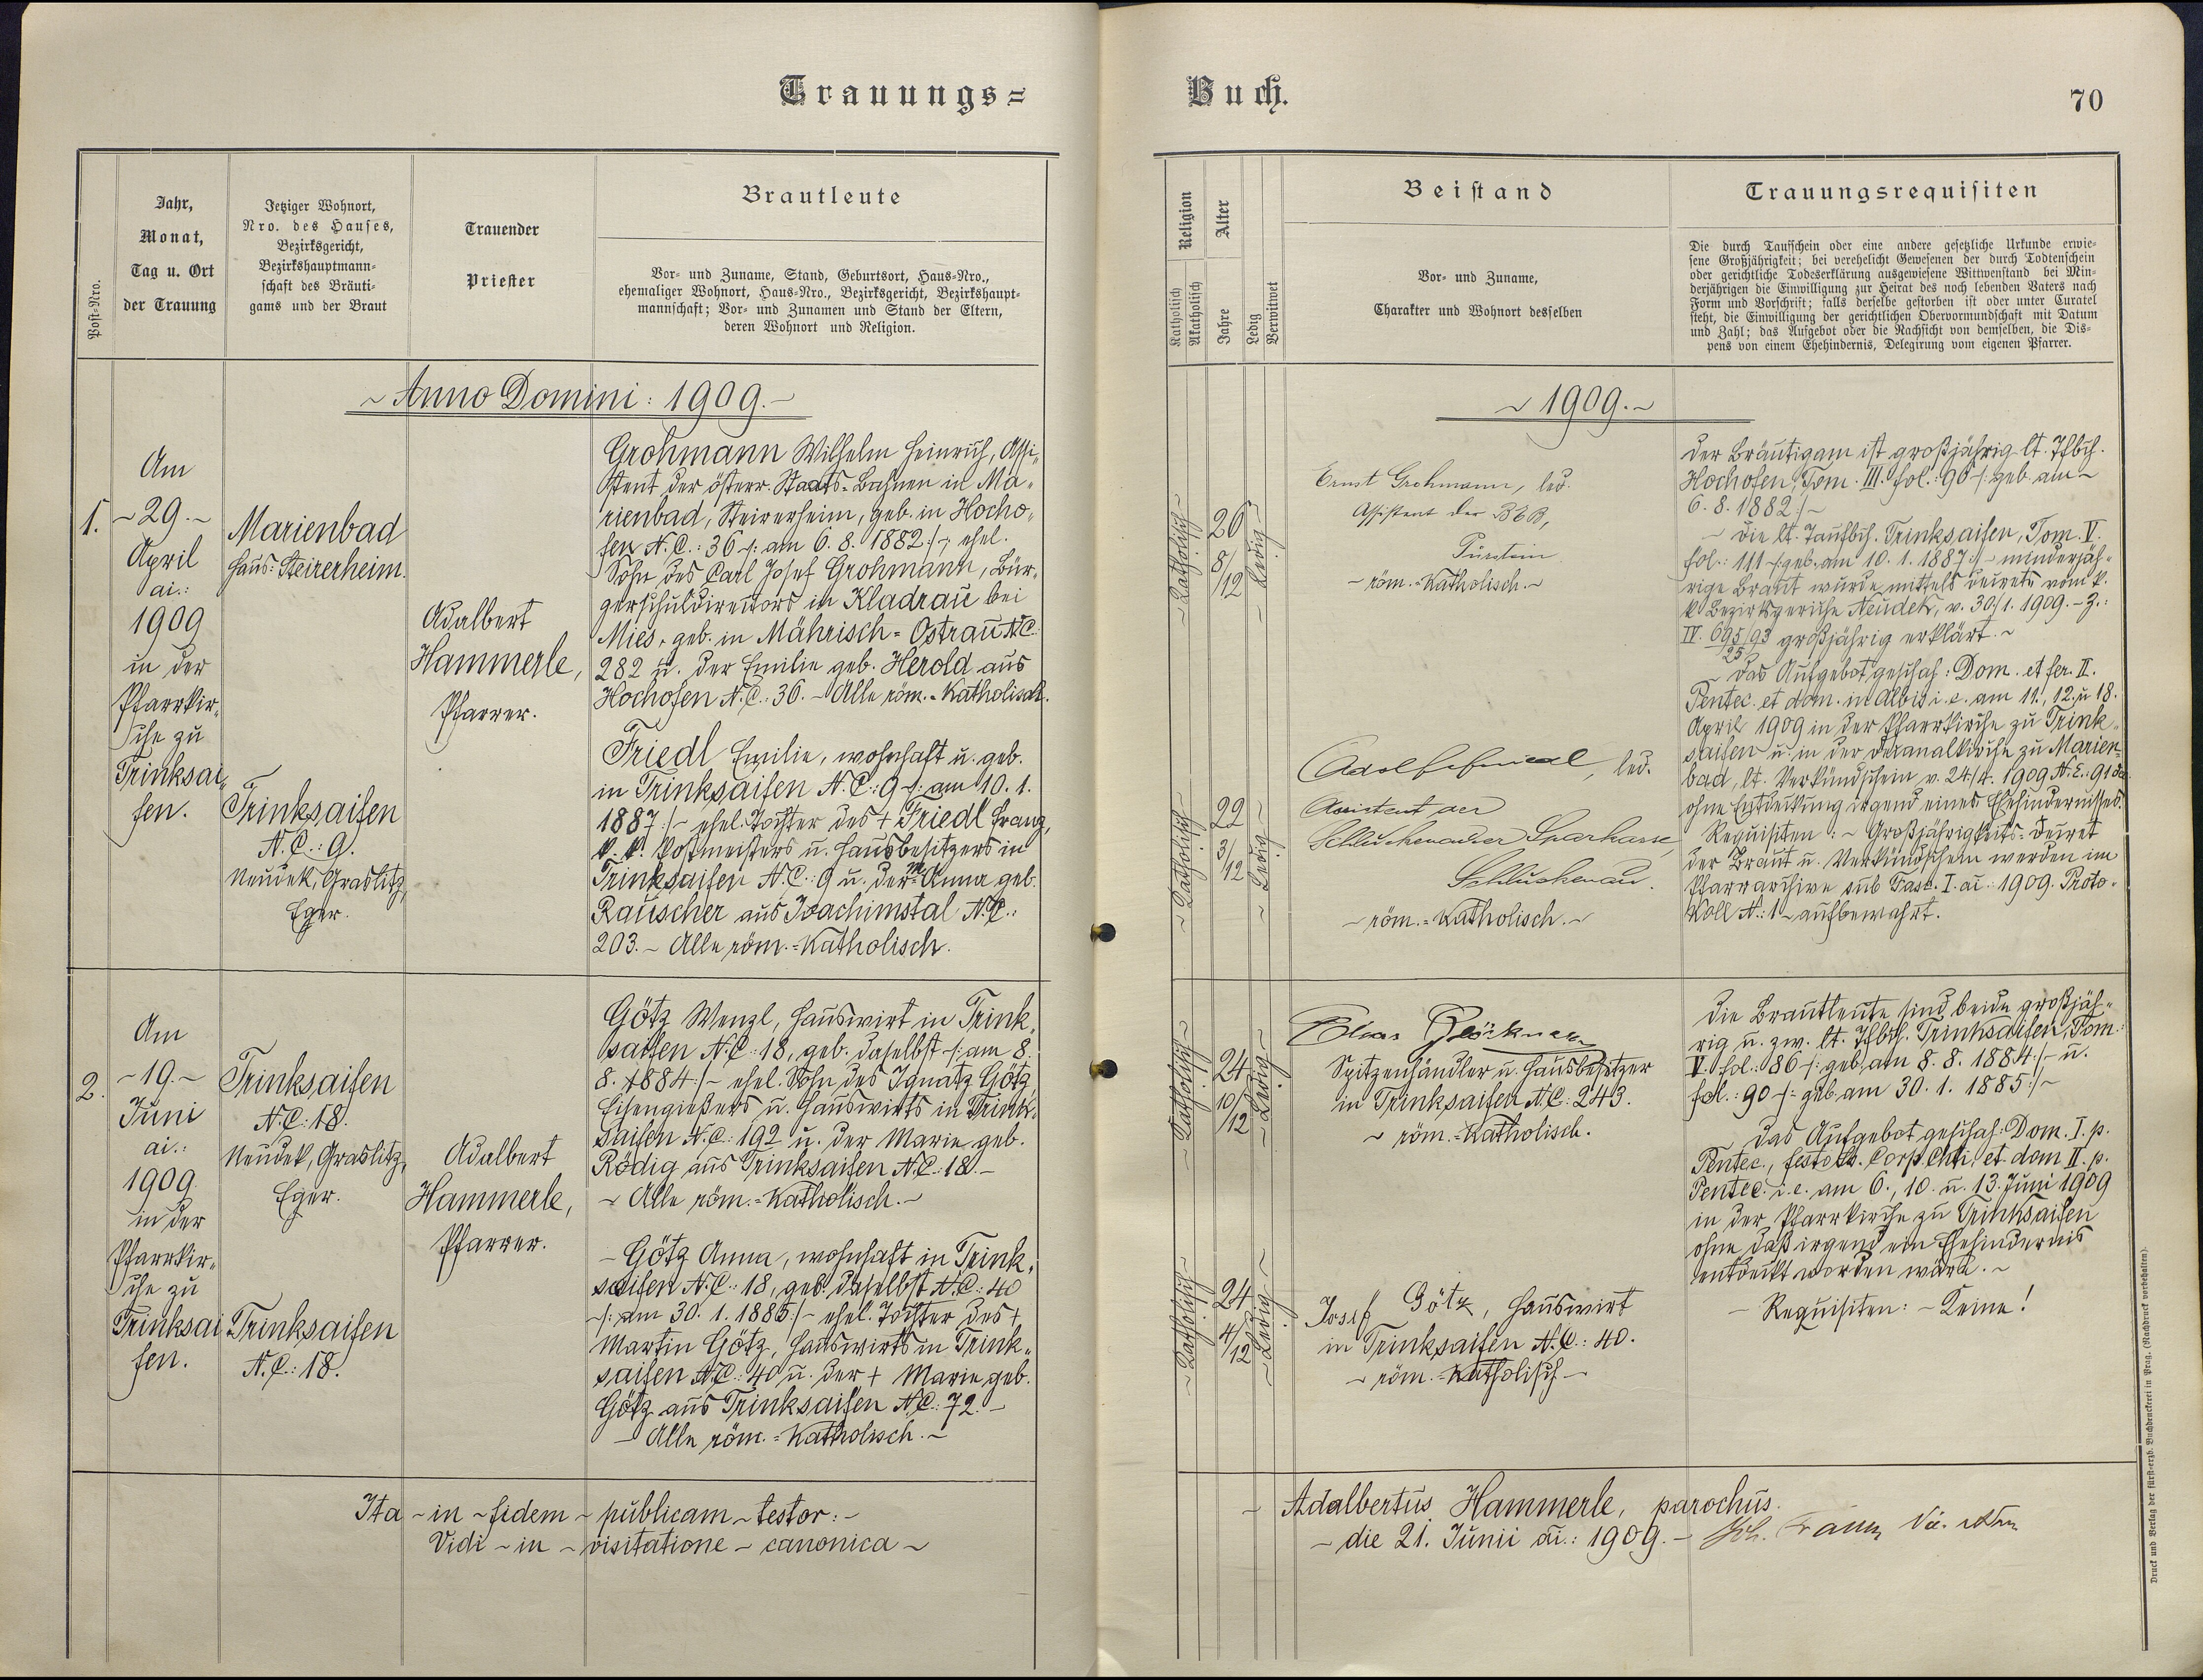 Trauungs=
Buch.
70
Post-Nro.
Jahr,
Monat,
Tag u. Ort
der Trauung
Jetziger Wohnort,
Nro. des Hauses,
Bezirksgericht,
Bezirkshauptmann-
schaft des Bräuti-
gams und der Braut
Trauender
Priester
Brautleute
Vor- und Zuname, Stand, Geburtsort, Haus-Nro.,
ehemaliger Wohnort, Haus-Nro., Bezirksgericht, Bezirkshaupt-
mannschaft; Vor- und Zunamen und Stand der Eltern,
deren Wohnort und Religion.
Religion
Katholisch
Akatholisch
Alter
Jahre
Ledig
Verwitwet
Beistand
Vor- und Zuname,
Charakter und Wohnort desselben
Trauungsrequisiten
Die durch Taufschein oder eine andere gesetzliche Urkunde erwie-
sene Großjährigkeit; bei verehelicht Gewesenen der durch Todtenschein
oder gerichtliche Todeserklärung ausgewiesene Wittwenstand bei Min-
derjährigen die Einwilligung zur Heirat des noch lebenden Vaters nach
Form und Vorschrift; falls derselbe gestorben ist oder unter Curatel
steht, die Einwilligung der gerichtlichen Obervormundschaft mit Datum
und Zahl; das Aufgebot oder die Nachsicht von demselben, die Dis-
pens von einem Ehehindernis, Delegirung vom eigenen Pfarrer.
~ Anno Domini: 1909. ~
~ 1909. ~
1.
Am
~ 29. ~
April
ai.:
1909
in der
Pfarrkir-
che zu
Trinksai-
fen.
Marienbad
Haus: Steirerheim.
Trinksaifen
N.C.: 9.
Neudek, Graslitz,
Eger.
Adalbert
Hammerle,
Pfarrer.
Grohmann Wilhelm Heinrich, Assi-
stent der österr. Staats-Bahnen in Ma-
rienbad, Steirerheim, geb. in Hocho-
fen N.C.: 36 /: am 6. 8. 1882 :/ ~ ehel.
Sohn des Carl Josef Grohmann, Bür-
gerschuldirectors in Kladrau bei
Mies, geb. in Mährisch-Ostrau N.C.
282 u. der Emilie geb. Herold aus
Hochofen N.C.: 36. ~ Alle röm.-Katholisch.
Friedl Emilie, wohnhaft u. geb.
in Trinksaifen N.C.: 9 /: am 10. 1.
1887 :/ ~ ehel. Tochter des + Friedl Franz,
k. k. Postmeisters u. Hausbesitzers in
Trinksaifen N.C.: 9 u. der Anna geb.
Rauscher aus Joachimstal N.C.:
203. ~ Alle röm.-Katholisch.
~ Katholisch ~
26
8/12
~ Ledig ~
Ernst Grohmann, led.
Assistent der BEB,
Pürstein
~ röm.-Katholisch. ~
~ Katholisch ~
22
3/12
~ Ledig ~
Adolf led.
Assistent der
Schluckenauer Sparkasse,
Schluckenau.
~ röm.-Katholisch. ~
Der Bräutigam ist großjährig lt. Tfbch.
Hochofen, Tom. III. fol.: 90 /: geb. am ~
6. 8. 1882 :/ ~
~ Die lt. Taufbch. Trinksaifen, Tom. V.
fol.: 111 /: geb. am 10. 1. 1887 :/ ~ minderjäh-
rige Braut wurde mittels Decrets vom k.
k. Bezirksgerichte Neudek, v. 30/1. 1909. ~ Z.:
IV. 695/93 großjährig erklärt. ~
25
~ Das Aufgebot geschah: Dom. et fer. II.
Pentec. et dom. in Albis i. e. am 11., 12. u 18.
April 1909 in der Pfarrkirche zu Trink-
saifen u. in der Decanalkirche zu Marien-
bad, lt. Verkündschein v. 24/4. 1909 N.E.: 91
ohne Entdeckung irgend eines Ehehindernisses.
Requisiten: ~ Großjährigkeits-Decret
der Braut u. Verkündschein werden im
Pfarrarchive sub Fasc. I. ai.: 1909. Proto-
koll N.: 1 ~ aufbewahrt.
2.
Am
~ 19. ~
Juni
ai.:
1909
in der
Pfarrkir-
che zu
Trinksai
fen.
Trinksaifen
N.C.: 18.
Neudek, Graslitz,
Eger.
Trinksaifen
N.C.: 18.
Adalbert
Hammerle,
Pfarrer.
Götz Wenzl, Hauswirt in Trink-
saifen N.C.: 18, geb. daselbst /: am 8.
8. 1884 :/ ~ ehel. Sohn des Ignatz Götz,
Eisengießers u. Hauswirts in Trink-
saifen N.C.: 192 u. der Marie geb.
Rödig aus Trinksaifen N.C.: 18. ~
~ Alle röm.-Katholisch. ~
~ Götz Anna, wohnhaft in Trink-
saifen N.C.: 18, geb. daselbst N.C.: 40
/: am 30. 1. 1885 :/ ~ ehel. Tochter des +
Martin Götz, Hauswirts in Trink-
saifen N.C.: 40 u. der + Marie geb.
Götz aus Trinksaifen N.C.: 72. ~
~ Alle röm.-Katholisch. ~
~ Katholisch ~
24
10/12
~ Ledig ~
Spitzenhändler u. Hausbesitzer
in Trinksaifen N.C.: 243.
~ röm.-Katholisch.
~ Katholisch ~
24
4/12
~ Ledig ~
Josef Götz, Hauswirt
in Trinksaifen N.C.: 40.
~ röm.-Katholisch ~
Die Brautleute sind beide großjäh-
rig u. zw. lt. Tfbch. Trinksaifen, Tom.
V. fol.: 86 /: geb. am 8. 8. 1884 :/ ~ u.
fol.: 90 /: geb. am 30. 1. 1885 :/ ~
~ Das Aufgebot geschah: Dom. I. p.
Pentec., festo Corp. Chti, et dom II. p.
Pentec. i. e. am 6., 10. u. 13. Juni 1909
in der Pfarrkirche zu Trinksaifen
ohne daß irgend ein Ehehindernis
entdeckt worden wäre. ~
~ Requisiten: ~ Keine!
Ita ~ in ~ fidem ~ publicam ~ testor: ~
~ Adalbertus Hammerle, parochus.
Vidi ~ in ~ visitatione ~ canonica ~
~ die 21. Junii ai.: 1909. ~ Joh.
Druck und Verlag der fürst-erzb. Buchdruckerei in Prag. (Nachdruck vorbehalten).